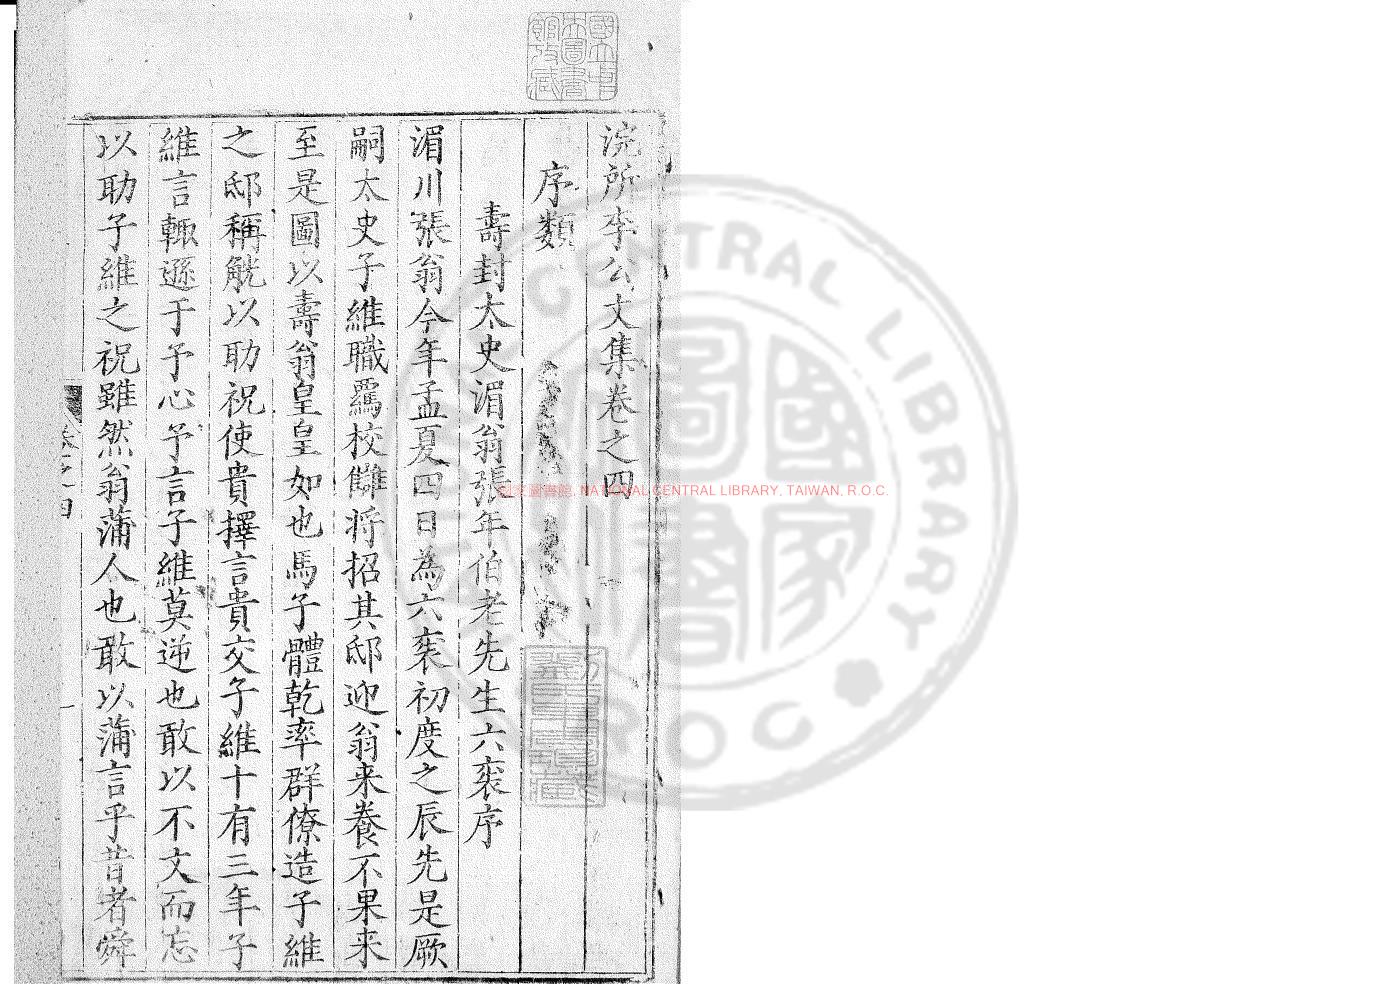 浣所李公文集卷之四
序類
壽封太史湄翁張年伯老先生六袠序
湄川張翁今年孟夏四日為六袠初度之辰先是厥
嗣太史子維職羈校讎將招其邸迎翁来養不果来
至是圖以壽翁皇皇如也馬子體乾率群僚造子維
之邸稱觥以助祝使貴擇言貴交子維十有三年子
維言輙遜于予心予言子維莫逆也敢以不文而忘
以助子維之祝雖然翁蒲人也敢以蒲言乎昔者舜
卷之四
一
國立中央圖書館收藏
國家圖書館, NATIONAL CENTRAL LIBRARY, TAIWAN, R.O.C.
CENTRAL LIBRARY
R.O.C.